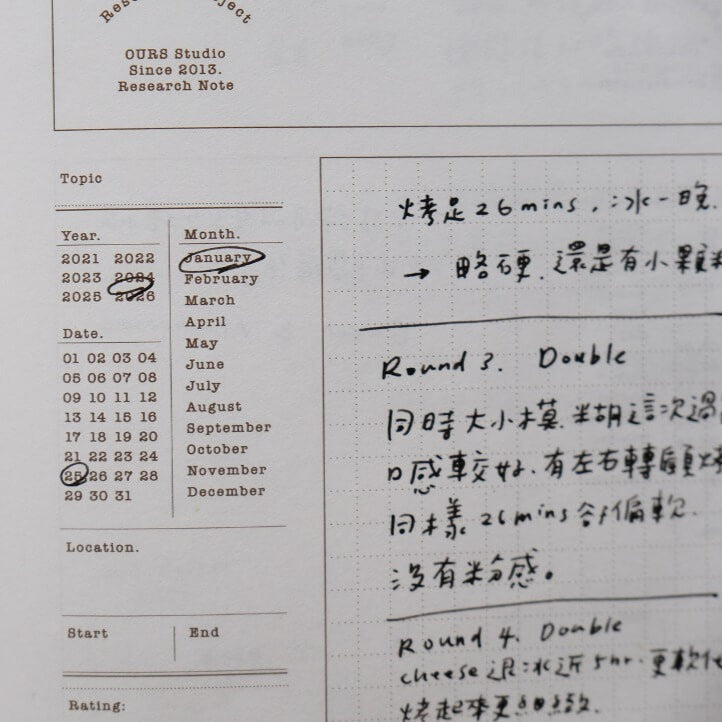 OURS Studio
Since 2013.
Research Note
Topic
Year.
2021 2022
2023 2024
2025 2026
Date.
01 02 03 04
05 06 07 08
09 10 11 12
13 14 15 16
17 18 19 20
21 22 23 24
25 26 27 28
29 30 31
Month.
January
February
March
April
May
June
July
August
September
October
November
December
Location.
Start
End
Rating:
烤足26mins,冰一晚.
→ 略硬.還是有小顆
Round 3. Double
同時大小模.糊這次過
口感較好.有左右轉
同樣26mins卻偏軟.
沒有粉感。
Round 4. Double
cheese退冰近5hr.更軟化
烤起來更細緻.